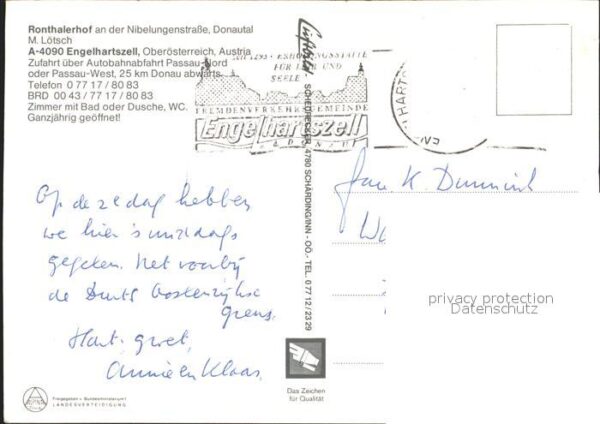 Ronthalerhof an der Nibelungenstraße, Donautal
M. Lötsch
A-4090 Engelhartszell, Oberösterreich, Austria
Zufahrt über Autobahnabfahrt Passau-Nord
oder Passau-West, 25 km Donau abwärts
Telefon 0 77 17 / 80 83
BRD 00 43 / 77 17 / 80 83
Zimmer mit Bad oder Dusche, WC.
Ganzjährig geöffnet!
SEIT 1293 - ERHOLUNGSSTÄTTE
FÜR LEIB UND
SEELE
FREMDENVERKEHRSGEMEINDE
Engelhartszell
A. D. DONAU
4780 SCHÄRDING/INN - OÖ. - TEL. 0 77 12 / 23 29
Op deze dag hebben
we hier 's middags
gegeten. Net voorbij
de Duits Oostenrijkse
grens.
Hart. groet,
Annie en Klaas.
Fam. K.
privacy protection
Datenschutz
Das Zeichen
für Qualität
Freigegeben v. Bundesministerium f.
LANDESVERTEIDIGUNG